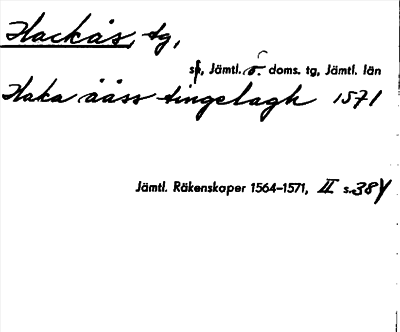 Hackås, tg,
sn, Jämtl. ö. doms. tg, Jämtl. län
Haka ååss tingelagh 1571
Jämtl. Räkenskaper 1564–1571, II s. 384